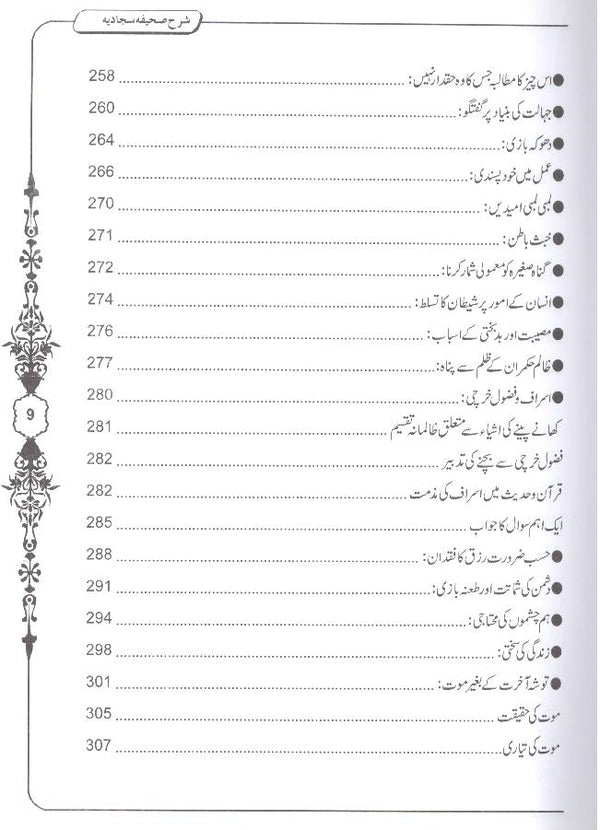 شرح صحیفہ سجادیہ
●اس چیز کا مطالبہ جس کا وہ حقدار نہیں: ........ 258
●جہالت کی بنیاد پر گفتگو: ........ 260
●دھوکہ بازی: ........ 264
●عمل میں خود پسندی: ........ 266
●لمبی لمبی امیدیں: ........ 270
●خبث باطن: ........ 271
●گناہ صغیرہ کو معمولی شمار کرنا: ........ 272
●انسان کے امور پر شیطان کا تسلط: ........ 274
●مصیبت اور بدبختی کے اسباب: ........ 276
●ظالم حکمران کے ظلم سے پناہ: ........ 277
●اسراف و فضول خرچی: ........ 280
کھانے پینے کی اشیاء سے متعلق ظالمانہ تقسیم ........ 281
فضول خرچی سے بچنے کی تدبیر ........ 282
قرآن وحدیث میں اسراف کی مذمت ........ 282
ایک اہم سوال کا جواب ........ 285
●حسب ضرورت رزق کا فقدان: ........ 288
●دشمن کی شماتت اور طعنہ بازی: ........ 291
●ہم چشموں کی محتاجی: ........ 294
●زندگی کی سختی: ........ 298
●توشہ آخرت کے بغیر موت: ........ 301
موت کی حقیقت ........ 305
موت کی تیاری ........ 307
9